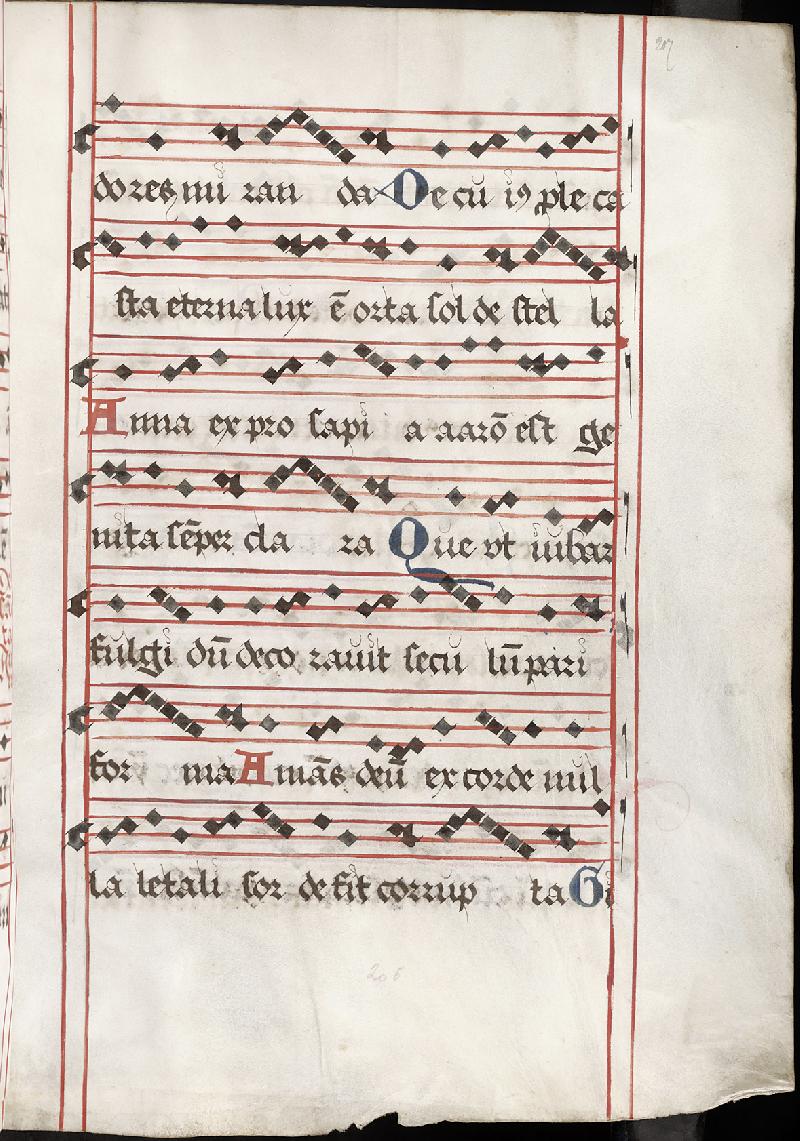 217
dores mi ran da De cuiꝰ ple ca
sta eterna lux ē orta sol de stel la
Anna ex pro sapi a aarō est ge
nita sēper cla ra Que ut iubar
fulgi dū deco rauit secu lū pari
for ma Amās deū ex corde nul
la letali sor de fit corrup ta Gi
206